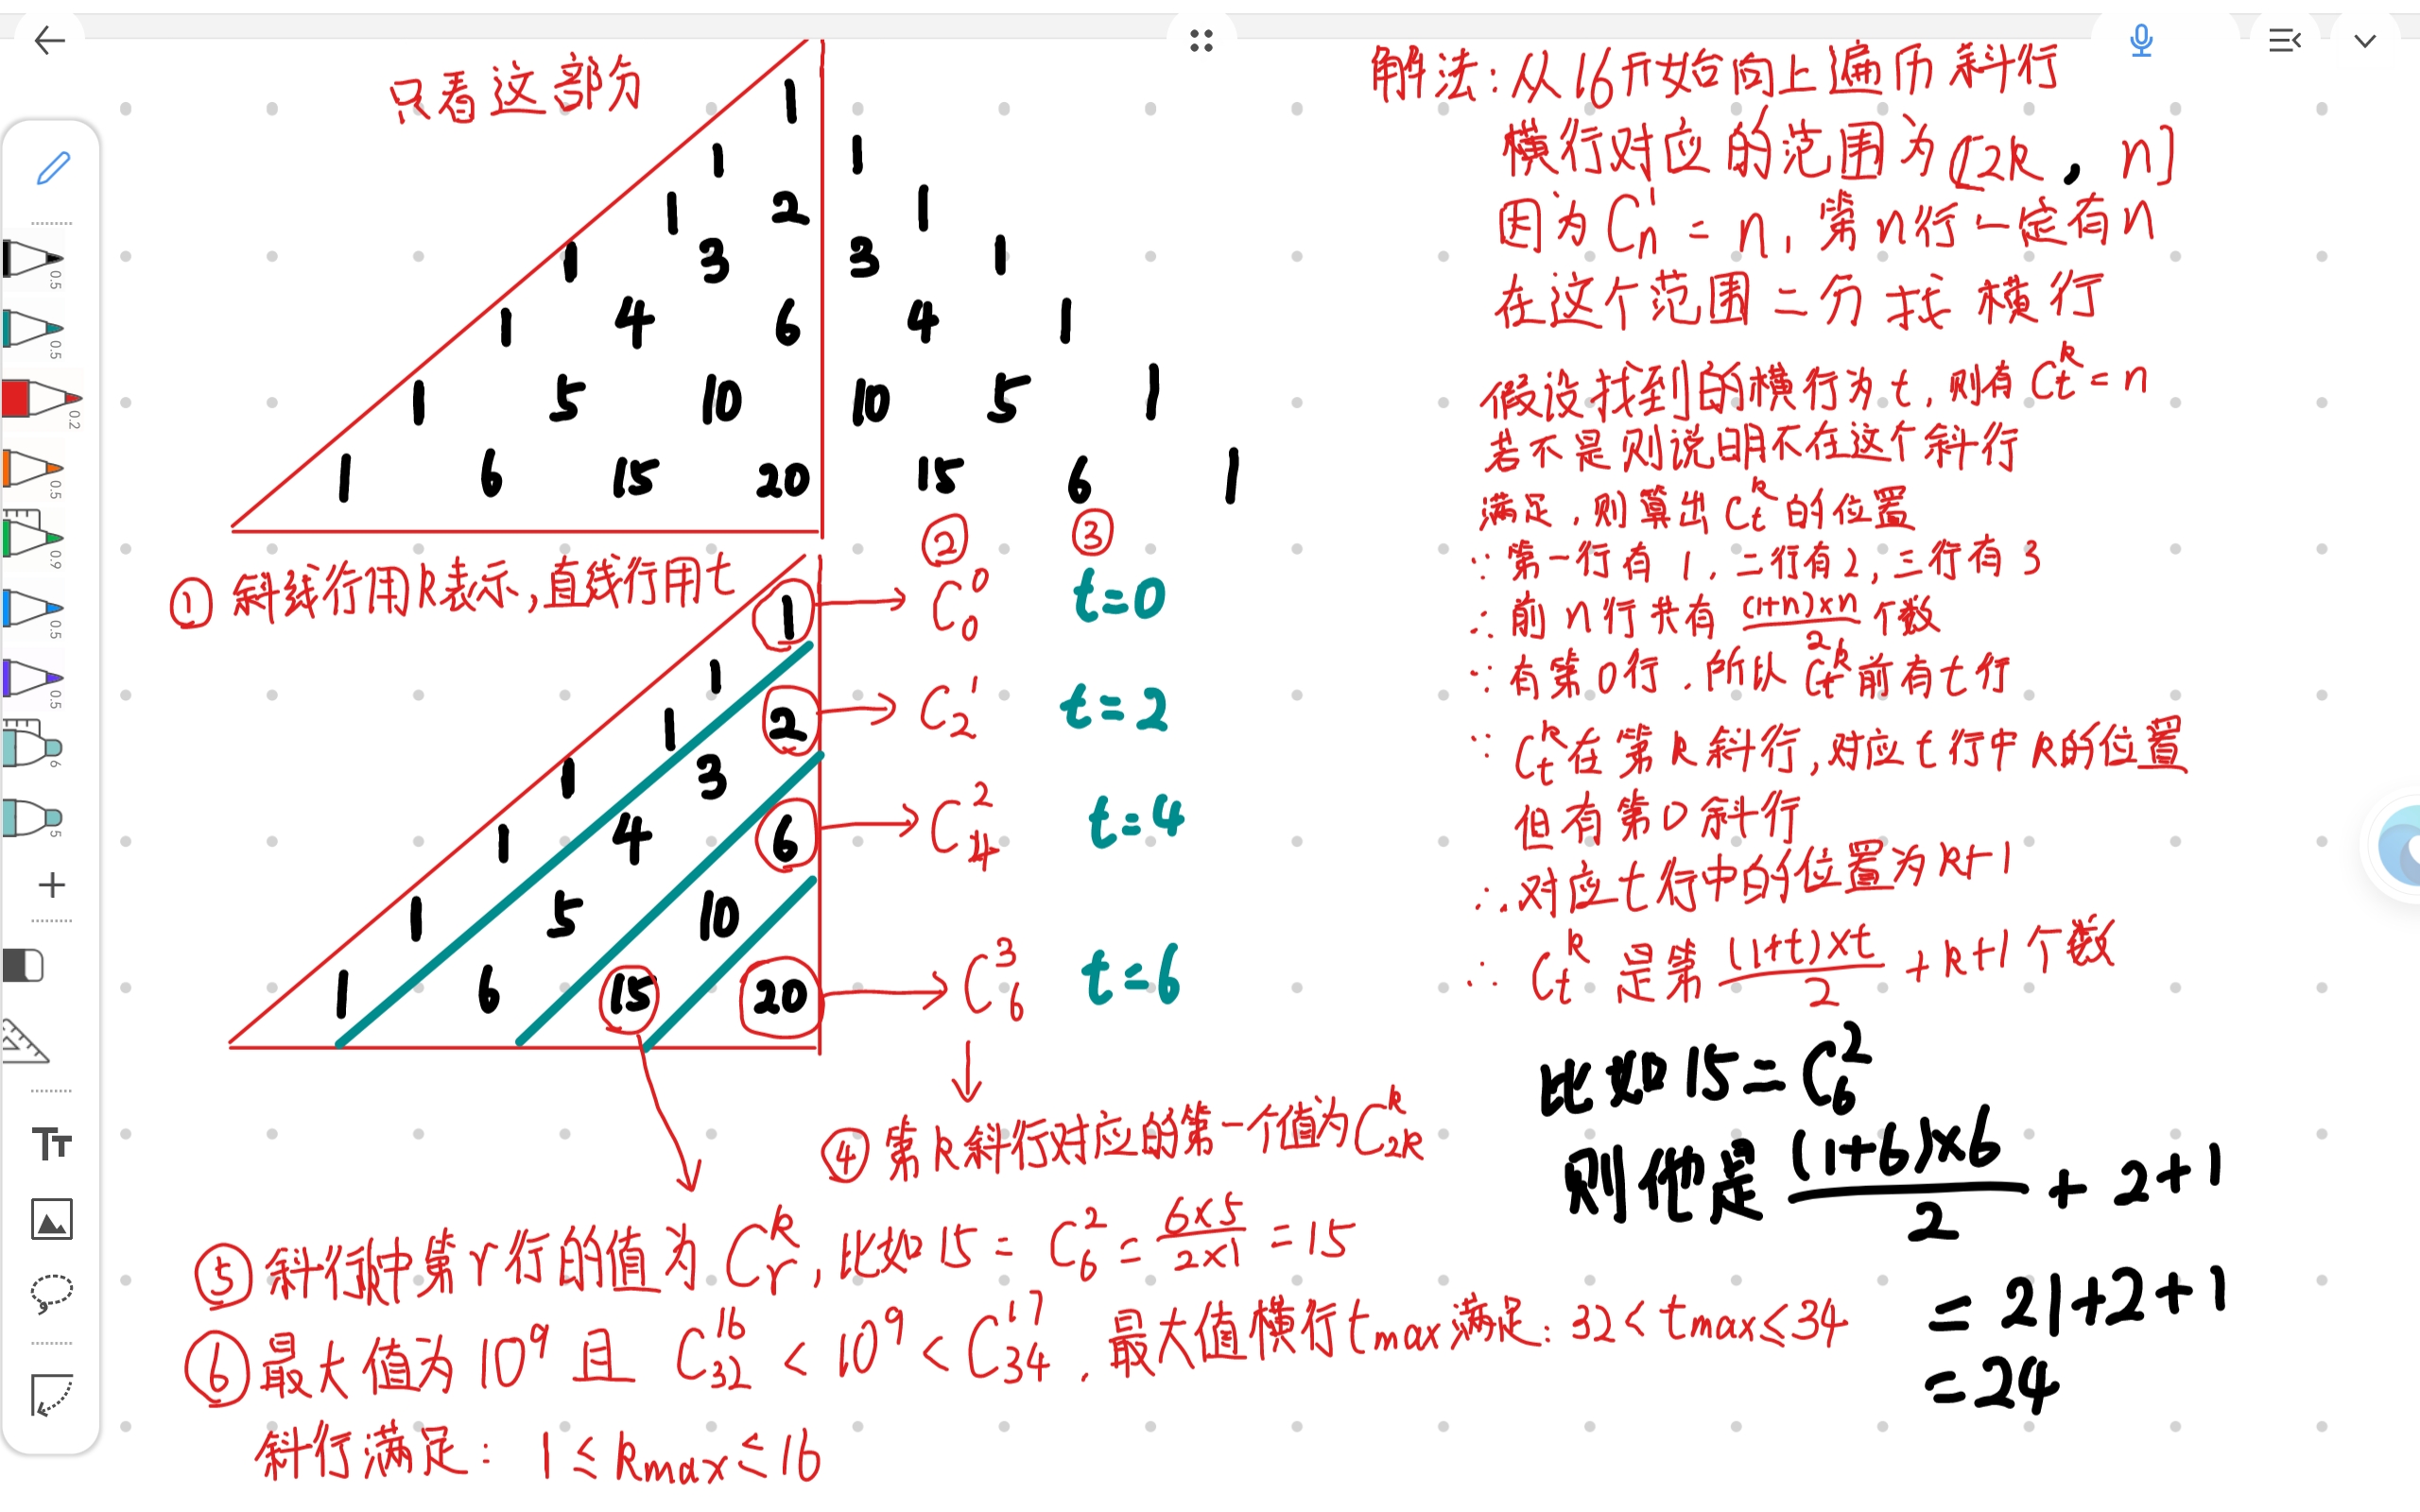 只看这部分
1
1 1
1 2 1
1 3 3 1
1 4 6 4 1
1 5 10 10 5 1
1 6 15 20 15 6 1
① 斜线行用k表示,直线行用t
② ③
1 → C₀⁰ t=0
1
1 2 → C₂¹ t=2
1 3
1 4 6 → C₄² t=4
1 5 10
1 6 15 20 → C₆³ t=6
④ 第k斜行对应的第一个值为C₂ₖᵏ
⑤ 斜行k中第r行的值为Cᵣᵏ, 比如15 = C₆² = 6×5/2×1 = 15
⑥ 最大值为10⁹ 且 C₃₂¹⁶ < 10⁹ < C₃₄¹⁷, 最大值横行tmax满足: 32 < tmax ≤ 34
斜行满足: 1 ≤ kmax ≤ 16
解法: 从16开始向上遍历斜行
横行对应的范围为[2k, n]
因为Cₙ¹ = n, 第n行一定有n
在这个范围二分找横行
假设找到的横行为t, 则有Cₜᵏ = n
若不是则说明不在这个斜行
满足, 则算出Cₜᵏ的位置
∵ 第一行有1, 二行有2, 三行有3
∴ 前n行共有 (1+n)×n/2 个数
∵ 有第0行, 所以Cₜᵏ前有t行
∵ Cₜᵏ在第k斜行, 对应t行中k的位置
但有第0斜行
∴ 对应t行中的位置为k+1
∴ Cₜᵏ 是第 (1+t)×t/2 + k+1 个数
比如15 = C₆²
则他是 (1+6)×6/2 + 2+1
= 21+2+1
= 24
TT
0.5
0.5
0.2
0.5
0.9
0.5
0.5
6
5